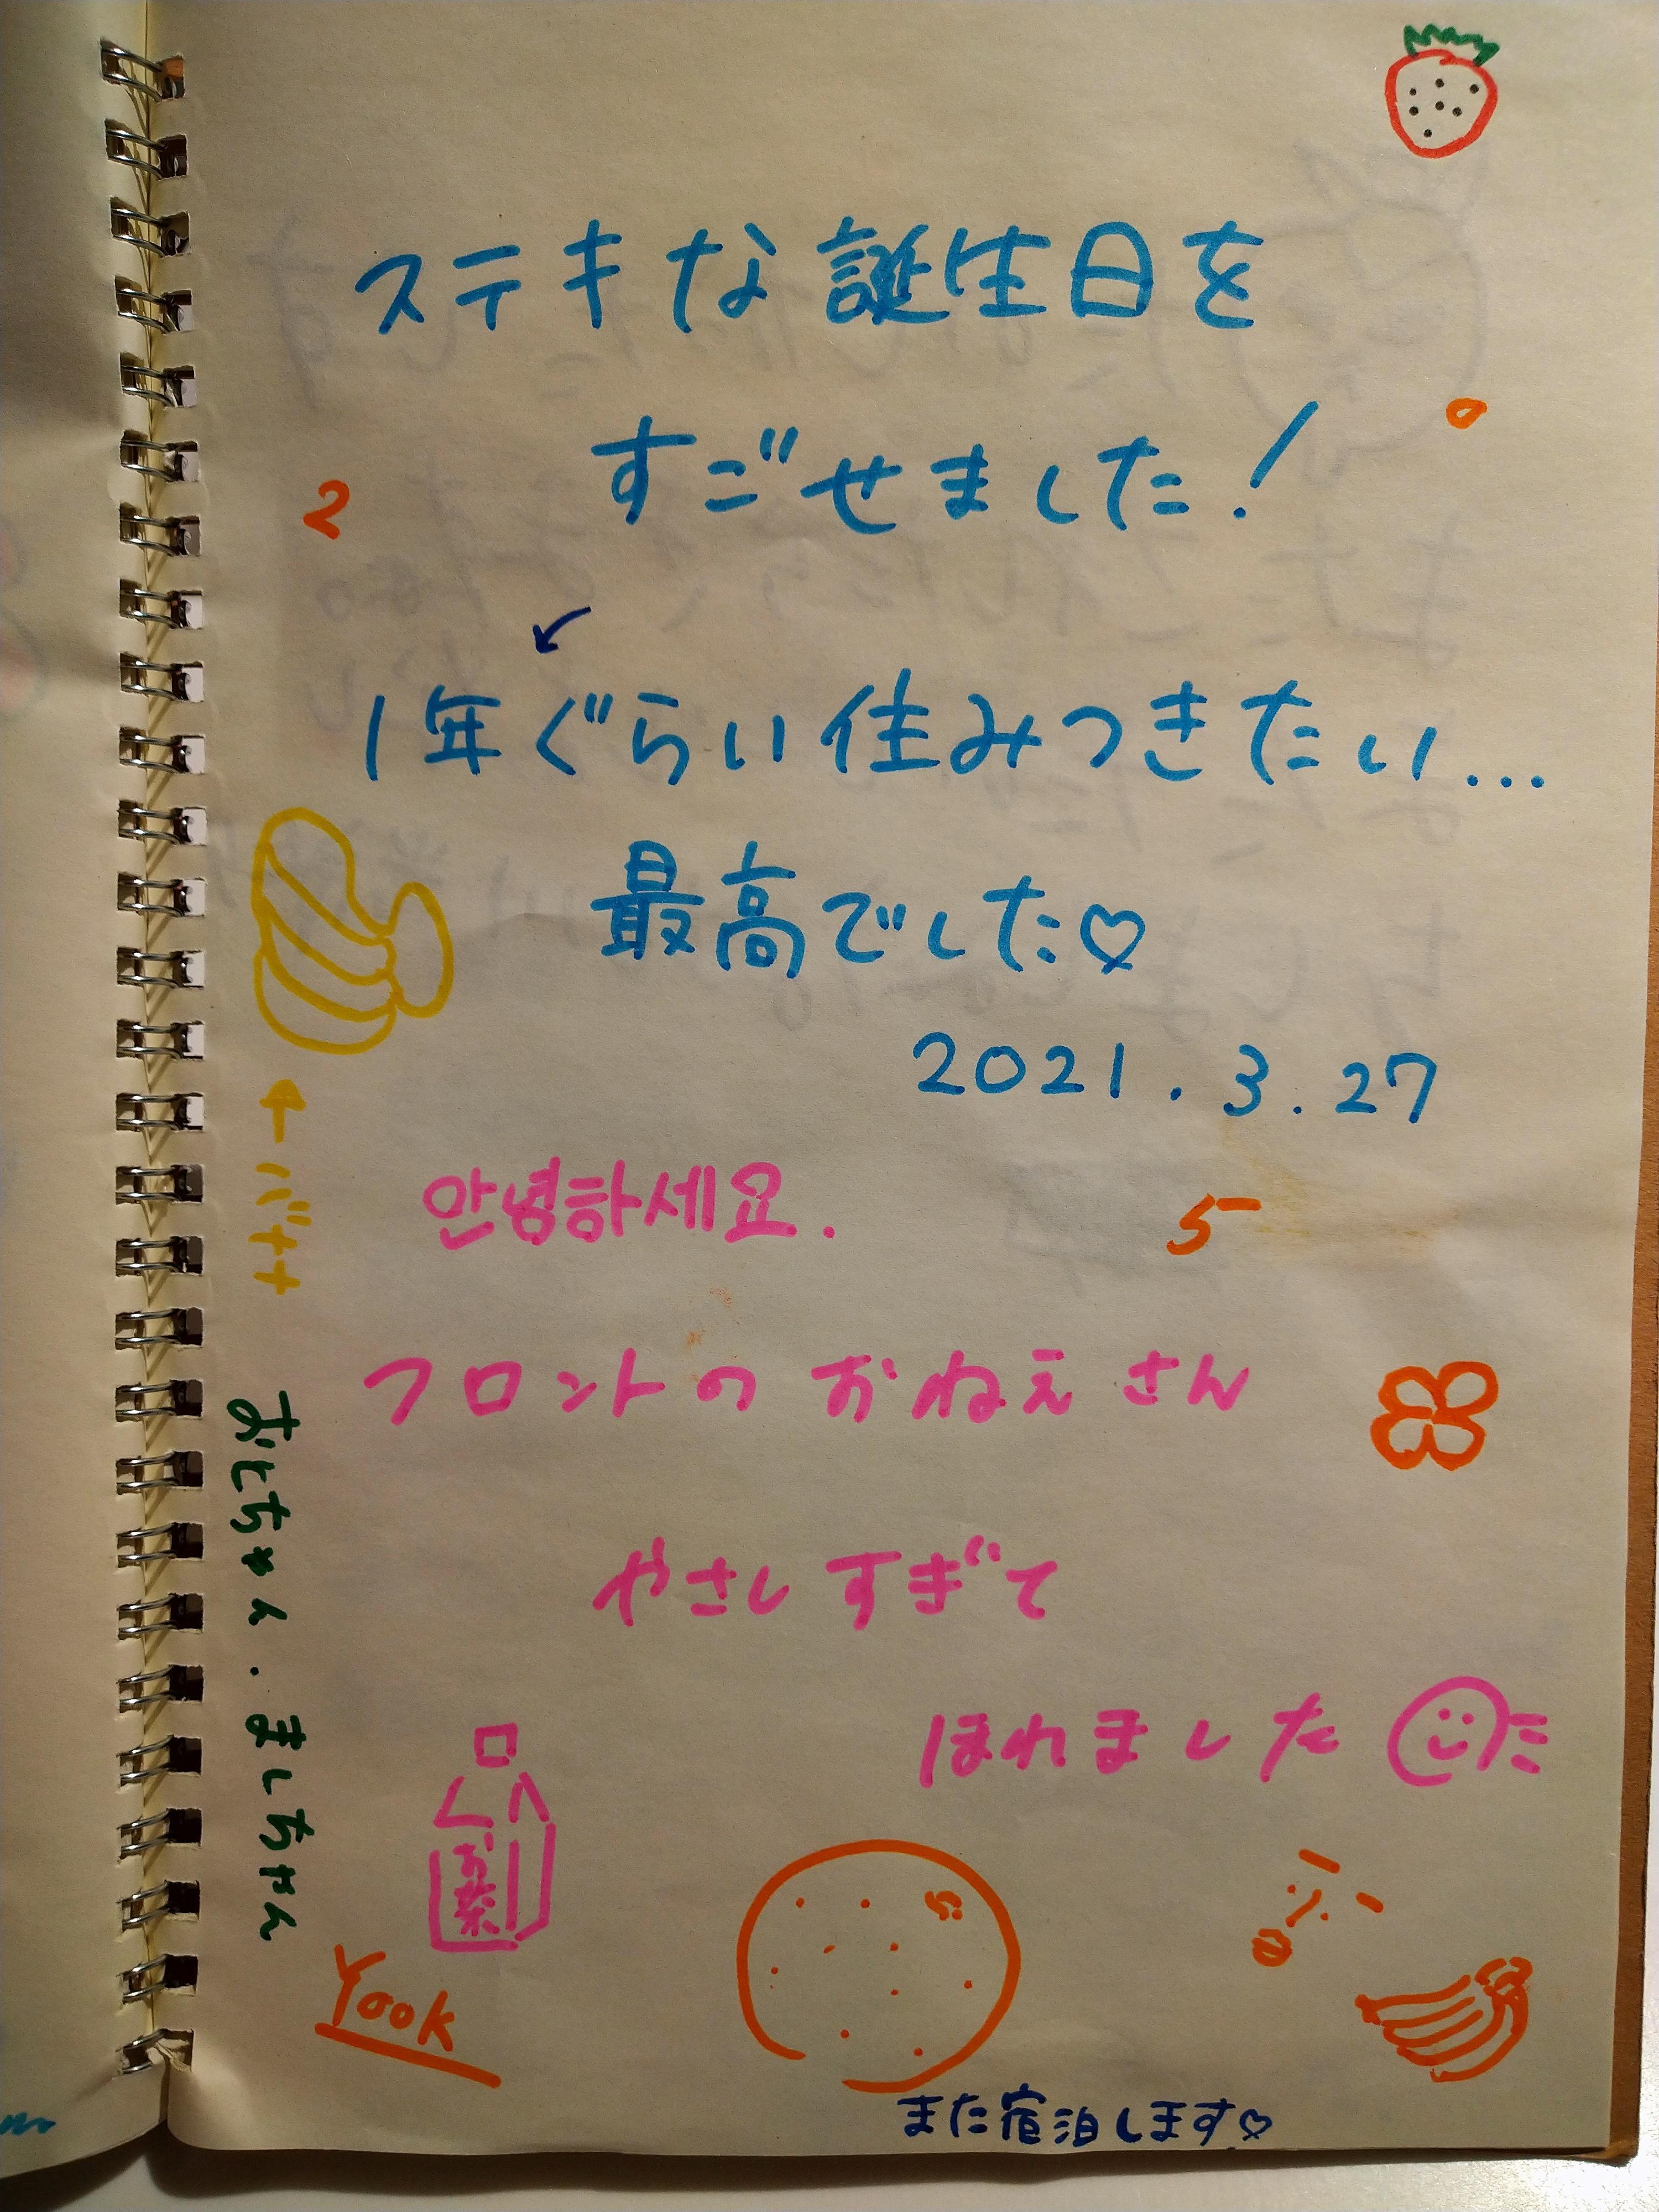 ステキな誕生日を
すごせました!
2
1年ぐらい住みつきたい...
最高でした♡
2021.3.27
←バナナ
안녕하세요.
5
フロントのおねえさん
やさしすぎて
ほれました
おとちゃん.ましちゃん
お茶
Yook
また宿泊します♡